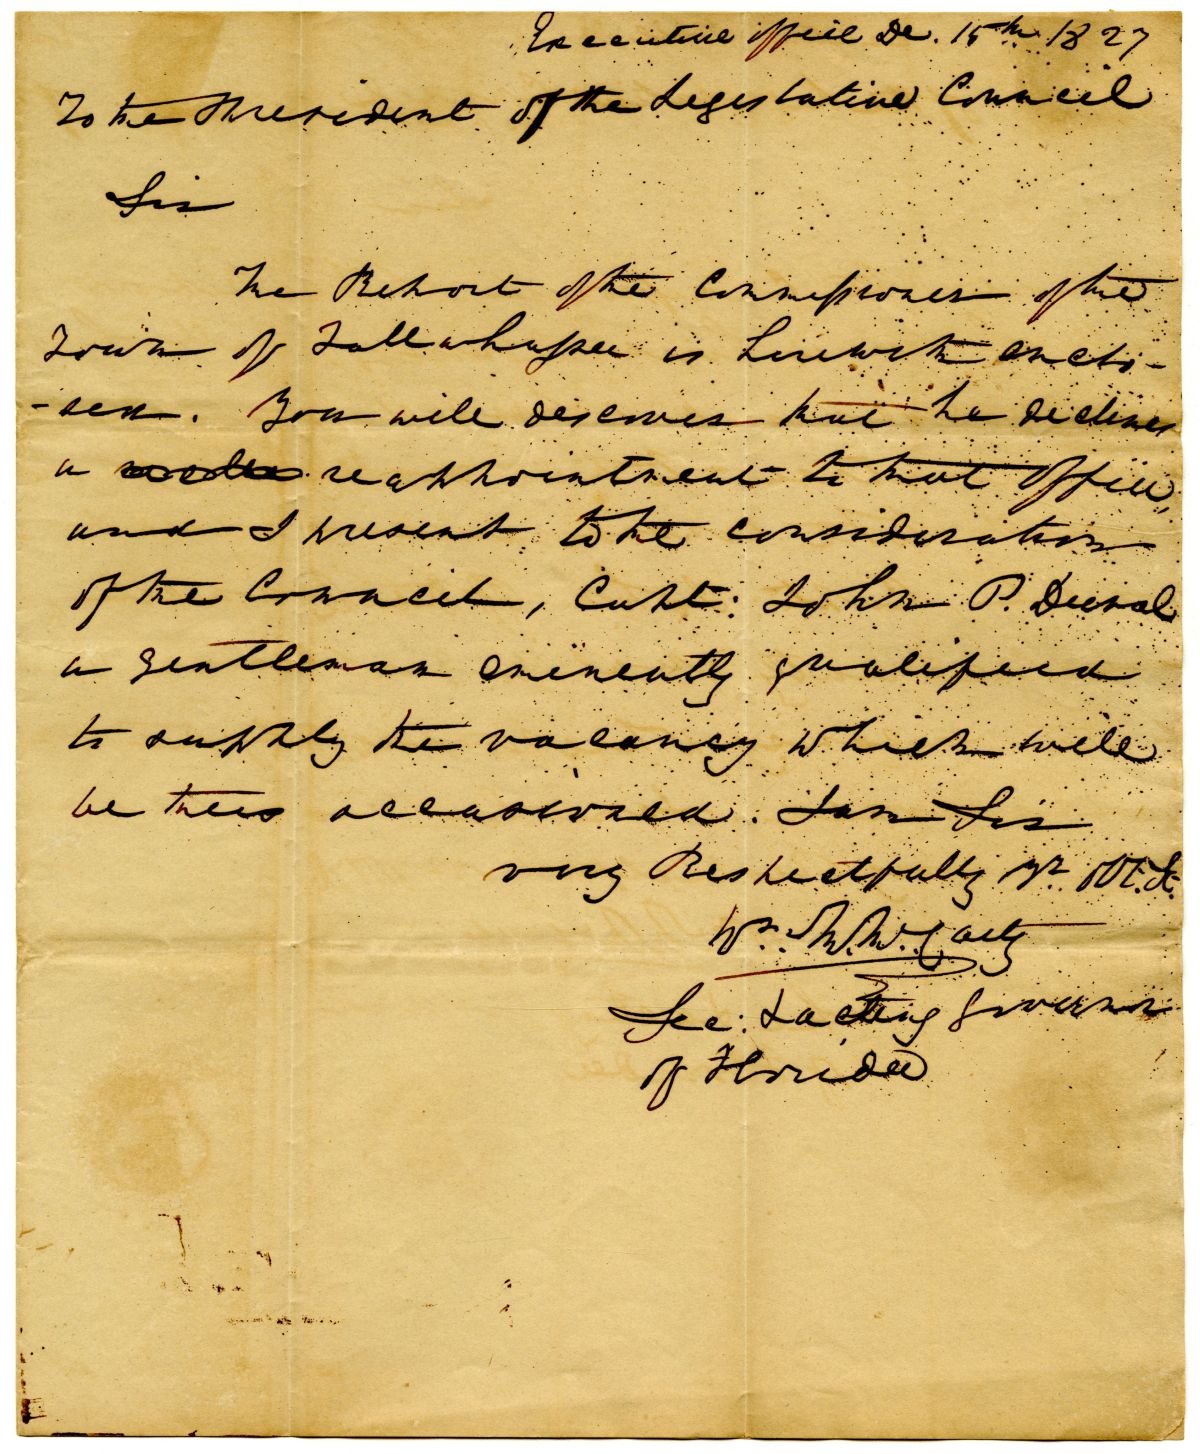 Executive office De. 15th 1827
To the President of the Legislative Council
Sir
The Report of the Commissioner of the
Town of Tallahassee is herewith enclo-
-sed. You will discover that he declines
a reappointment to that office,
and I present to the consideration
of the Council, Capt: John P. Duval
a gentleman eminently qualified
to supply the vacancy which will
be thus occasioned. I am Sir
very Respectfully yr. Obt. St.
Wm. M. McCarty
Sec: & acting Governor
of Florida